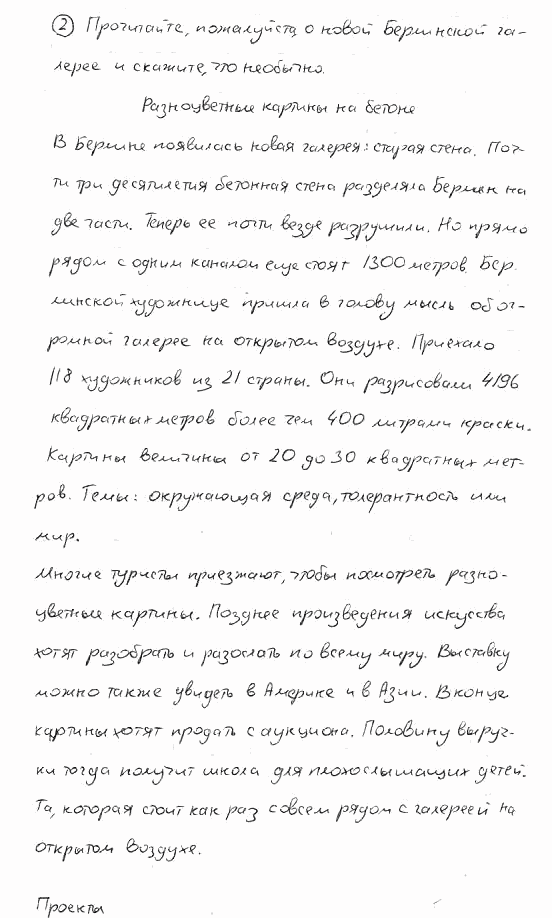 ② Прочитайте, пожалуйста, о новой Берлинской га-
лерее и скажите, что необычно.
Разноцветные картины на бетоне
В Берлине появилась новая галерея: старая стена. Поч-
ти три десятилетия бетонная стена разделяла Берлин на
две части. Теперь ее почти везде разрушили. Но прямо
рядом с одним каналом еще стоят 1300 метров. Бер
линской художнице пришла в голову мысль об ог-
ромной галерее на открытом воздухе. Приехало
118 художников из 21 страны. Они разрисовали 4196
квадратных метров более чем 400 литрами краски.
Картины величины от 20 до 30 квадратных мет-
ров. Темы: окружающая среда, толерантность или
мир.
Многие туристы приезжают, чтобы посмотреть разно-
цветные картины. Позднее произведения искусства
хотят разобрать и разослать по всему миру. Выставку
можно также увидеть в Америке и в Азии. В конце
картины хотят продать с аукциона. Половину выруч-
ки тогда получит школа для плохослышащих детей.
Та, которая стоит как раз совсем рядом с галереей на
открытом воздухе.
Проекты